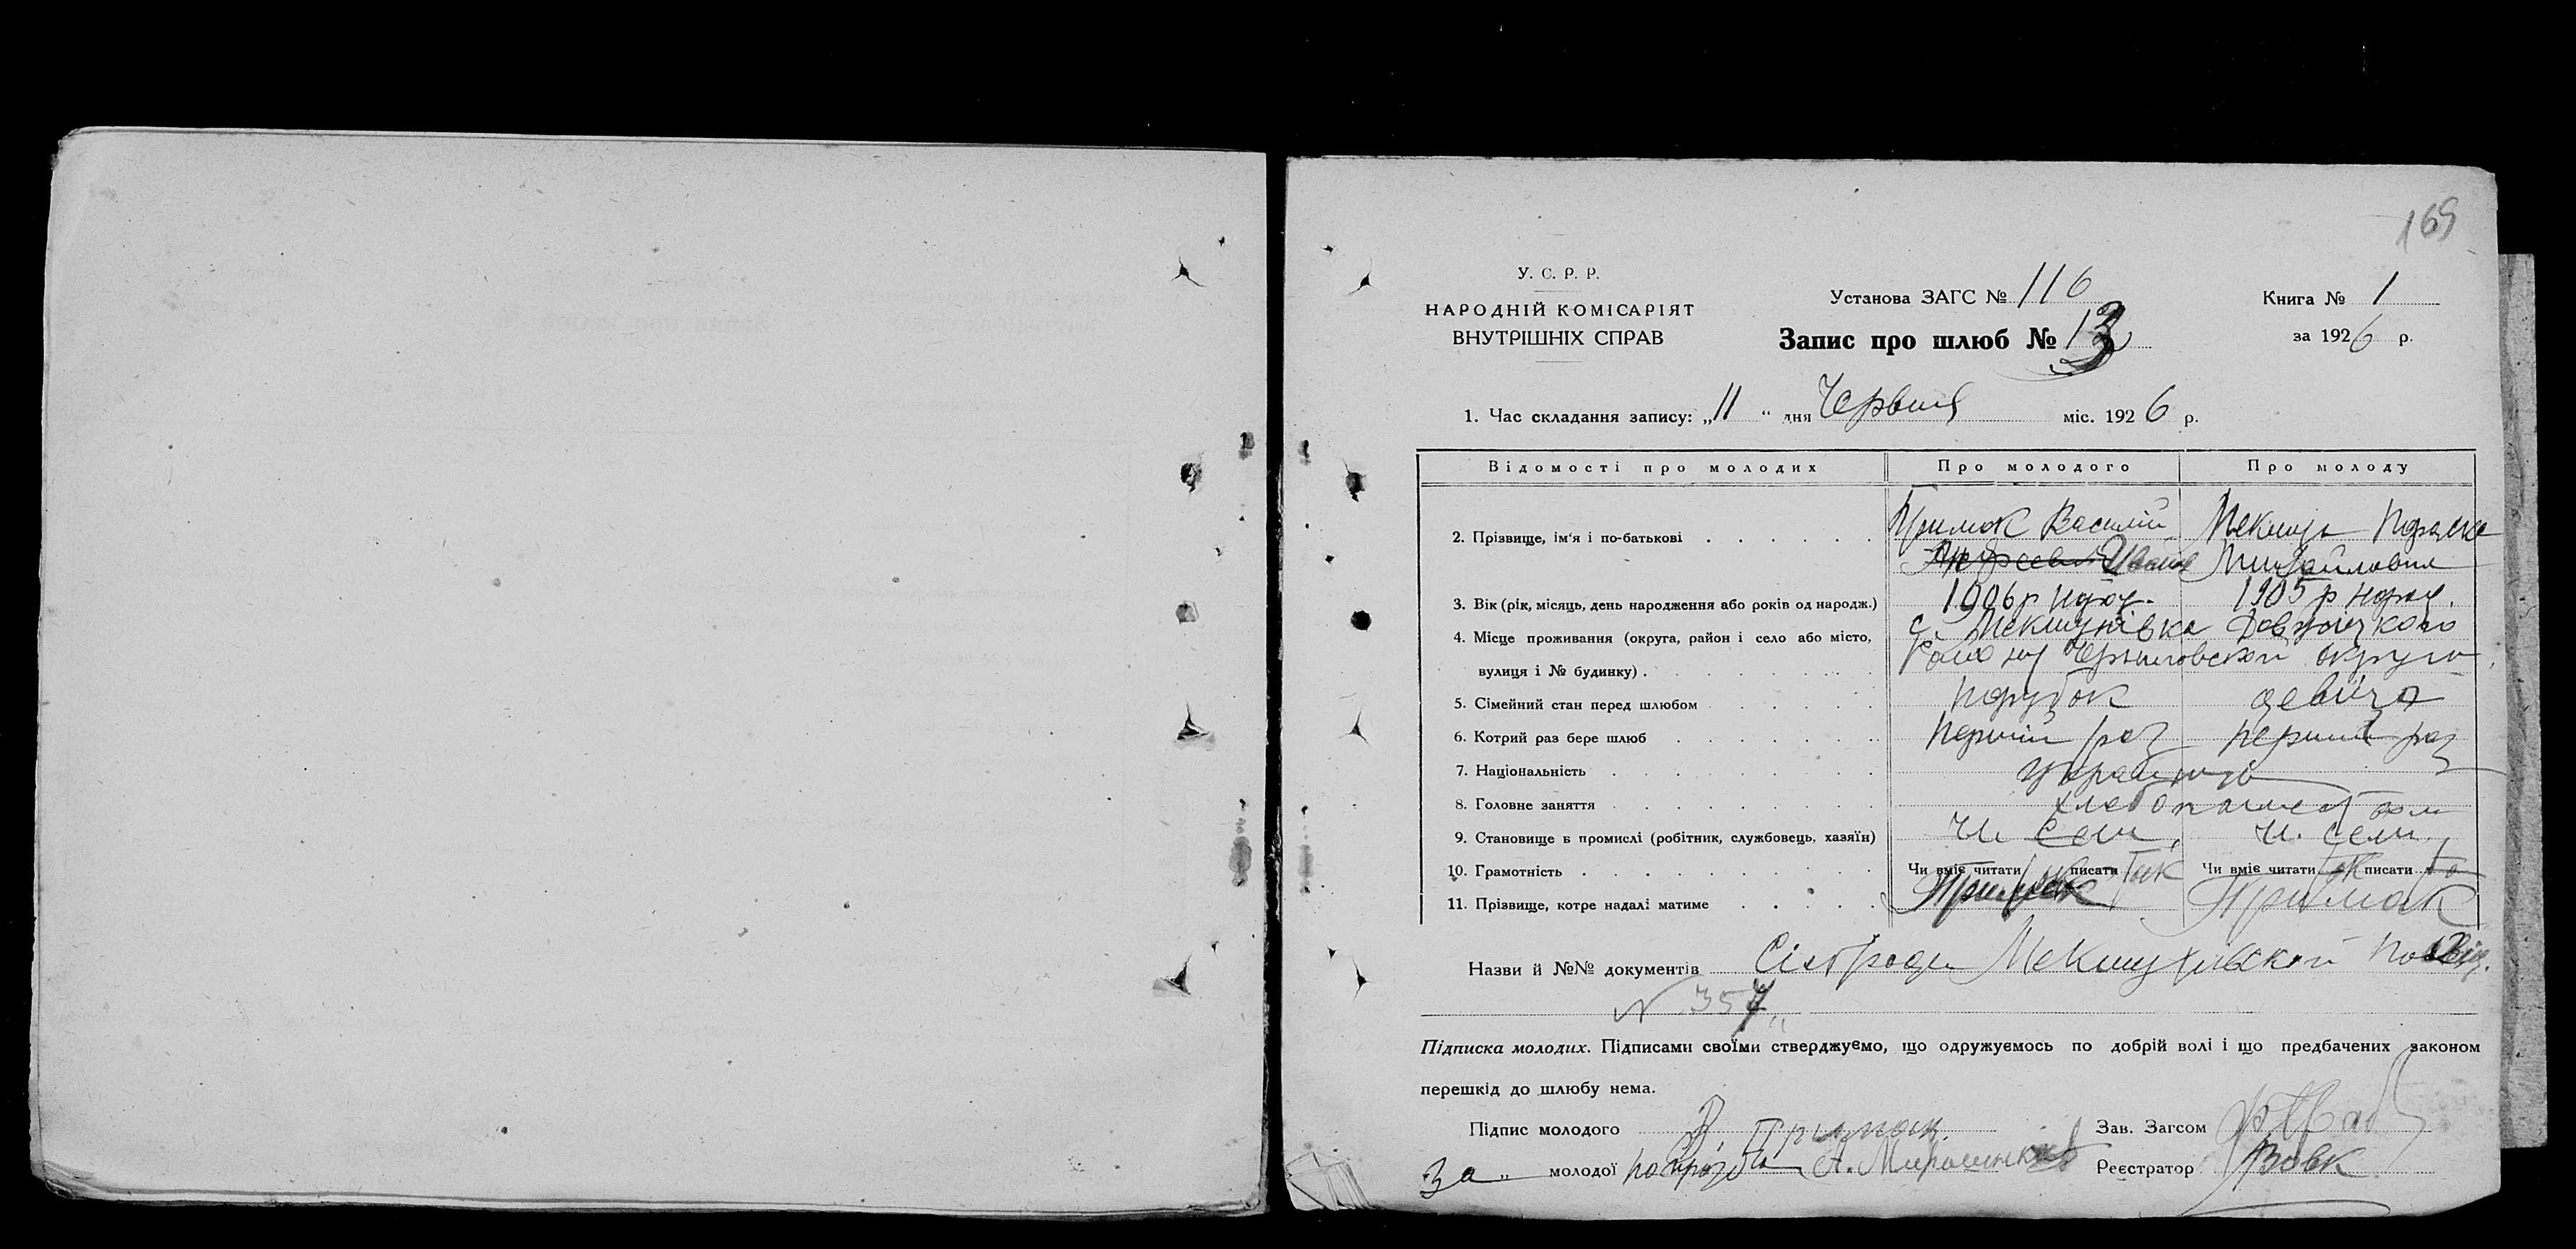 169
У. С. Р. Р.
НАРОДНІЙ КОМІСАРІЯТ
ВНУТРІШНІХ СПРАВ
Установа ЗАГС № 116
Запис про шлюб № 13
Книга № 1
за 1926 р.
1. Час складання запису: „11“ дня Червня міс. 1926 р.
Відомості про молодих Про молодого Про молоду
2. Прізвище, ім'я і по-батькові
Примак Василій
Параска
Михайловна
3. Вік (рік, місяць, день народження або років од народж.) 1906 р народ. 1905 р народ.
4. Місце проживання (округа, район і село або місто,
вулиця і № будинку)
с. Мекшунівка
району Черниговской округи
5. Сімейний стан перед шлюбом парубок девіца
6. Котрий раз бере шлюб перший раз перший раз
7. Національність
8. Головне заняття
9. Становище в промислі (робітник, службовець, хазяїн) Чл. сем. Чл. сем.
10. Грамотність Чи вміє читати писати так Чи вміє читати так писати
11. Прізвище, котре надалі матиме Примак Примак
Назви й №№ документів
№ 357
Підписка молодих. Підписами своїми стверджуємо, що одружуємось по добрій волі і що предбачених законом
перешкід до шлюбу нема.
Підпис молодого В. Примак. Зав. Загсом
За „ молодої А. Мирошник Реєстратор Вовк